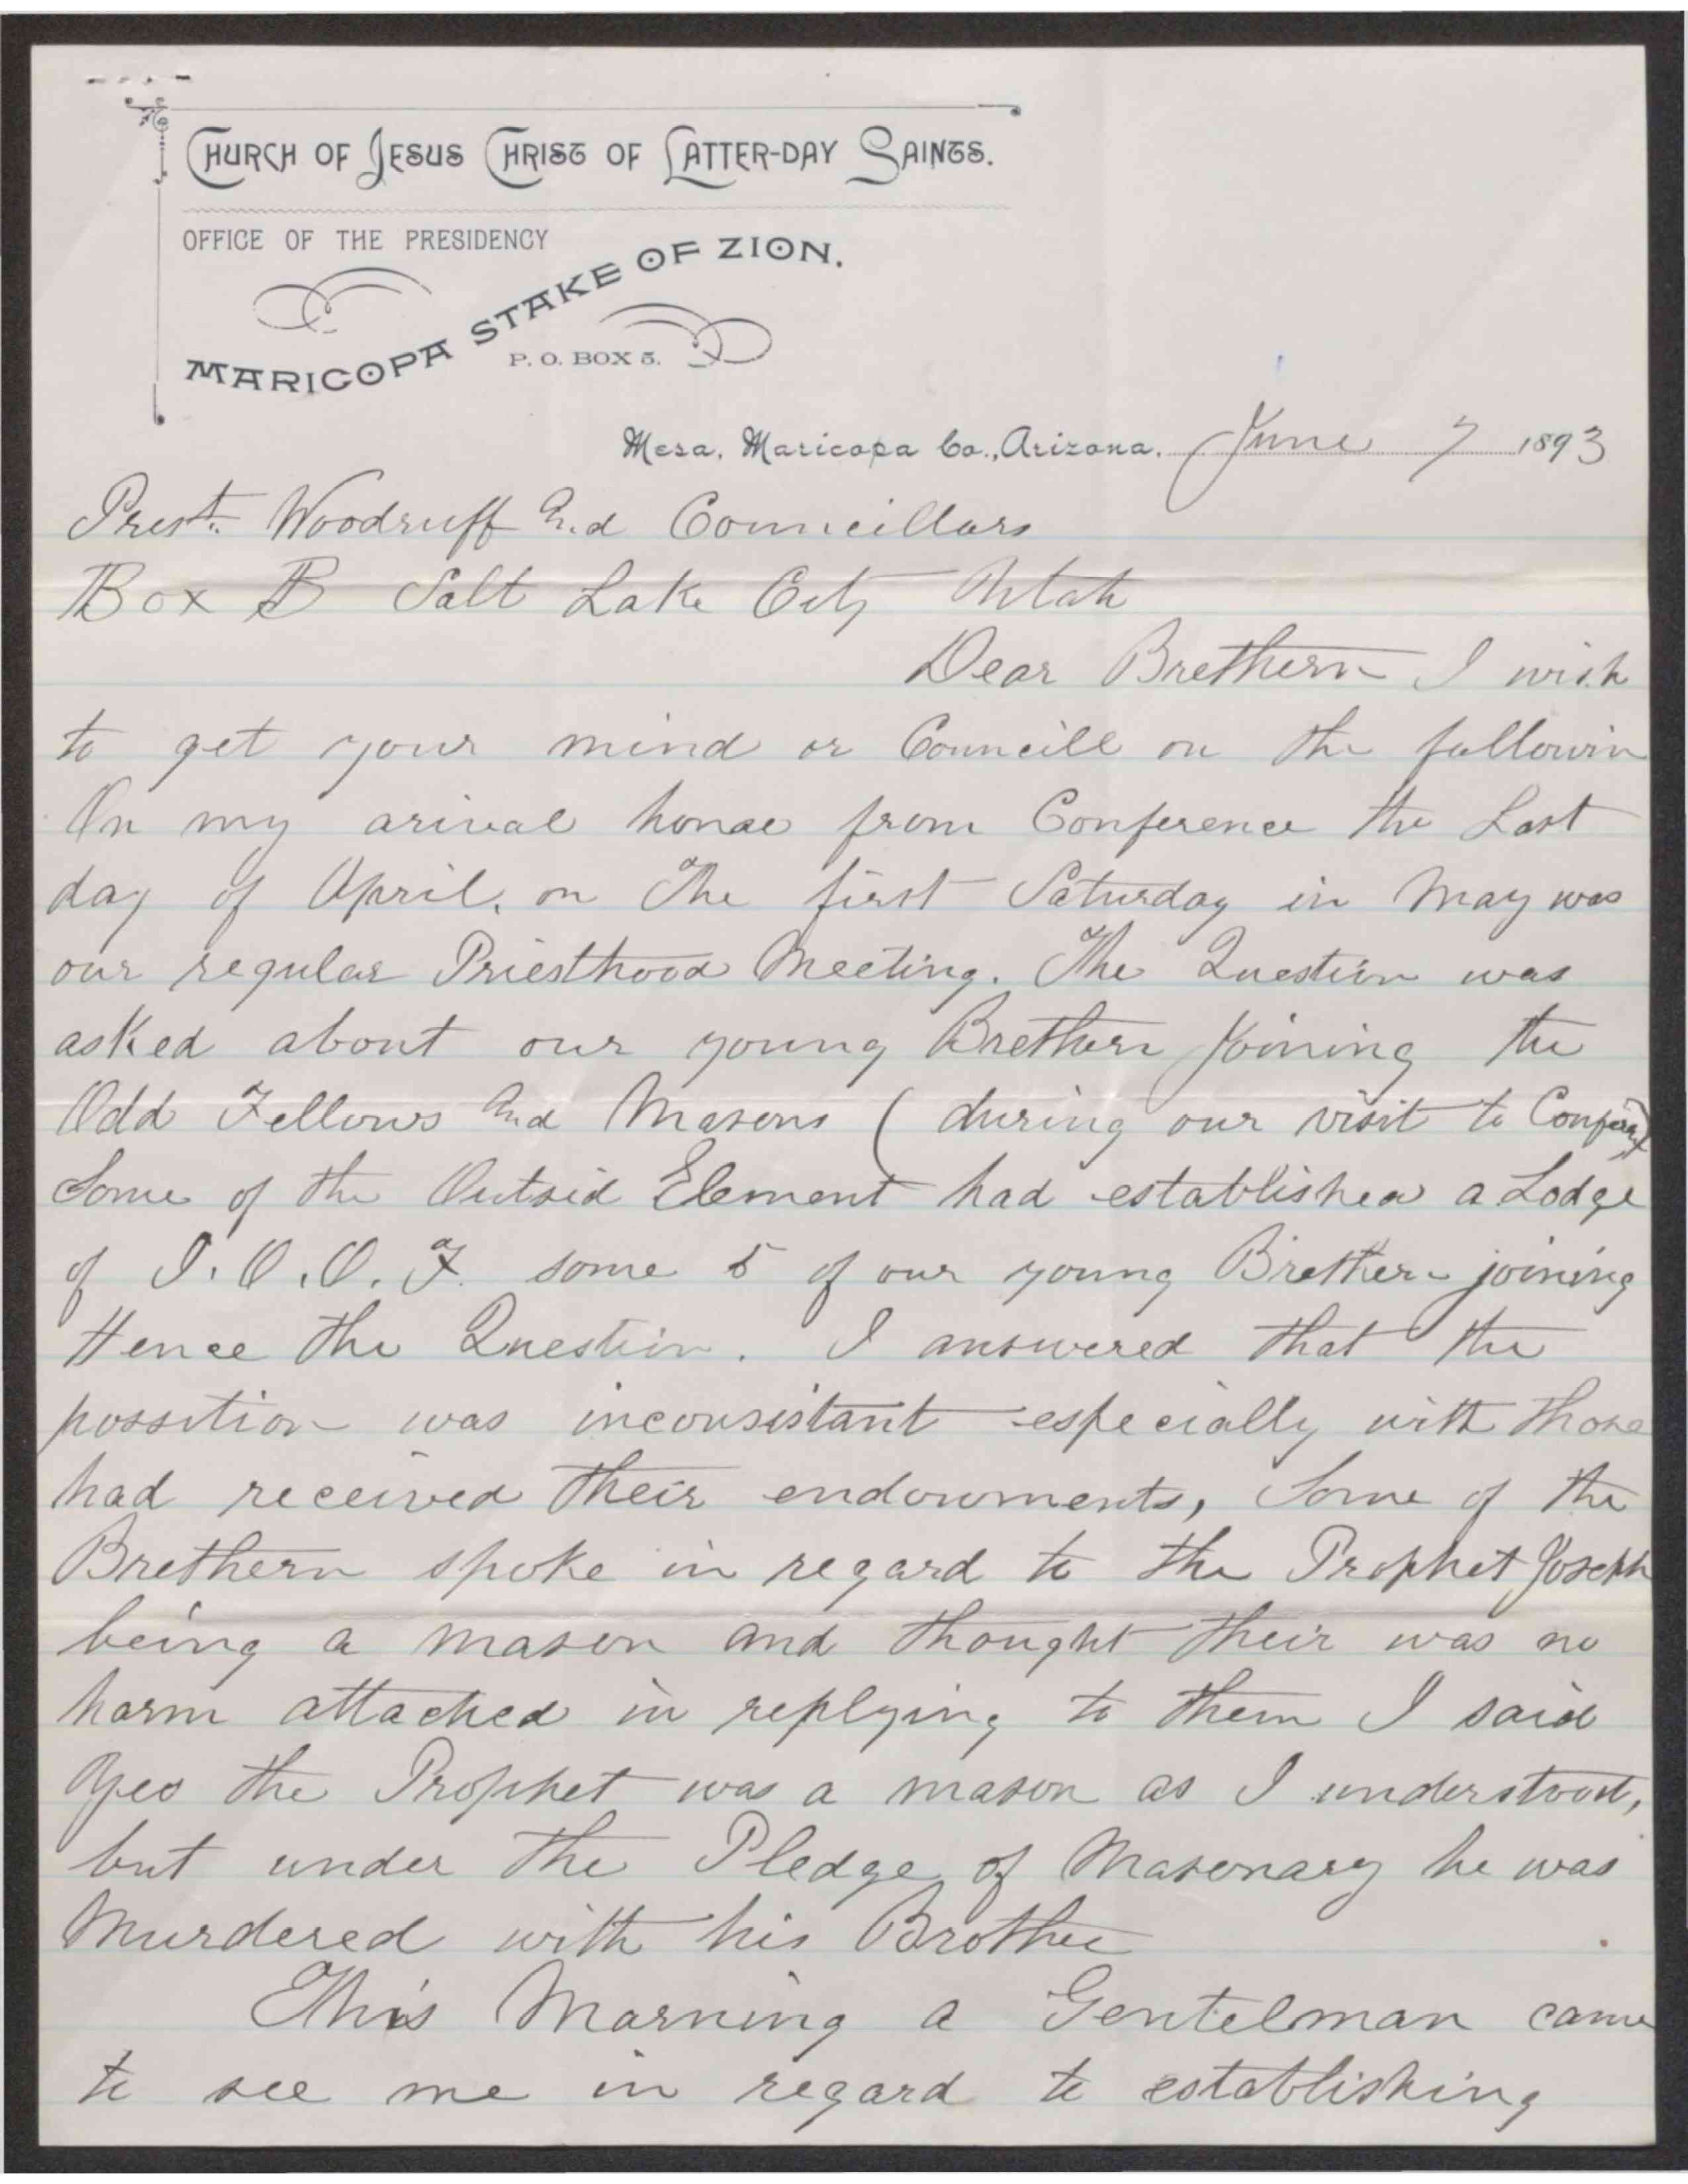 CHURCH OF JESUS CHRIST OF LATTER-DAY SAINTS.
OFFICE OF THE PRESIDENCY
MARICOPA STAKE OF ZION.
P. O. BOX 5.
Mesa, Maricopa Co., Arizona. June 7 1893
Prest. Woodruff And Councillars
Box B Salt Lake City Utah
Dear Brethern I wish
to get your mind or Councill on the followin
On my arival home from Conference the Last
day of April. on The first Saturday in May was
our regular Priesthood Meeting. The Question was
asked about our young Brethern Joining the
Odd Fellows And Masons ( during our visit to
Some of the Outsid Element had established a Lodge
of I. O. O. F. some 5 of our young Brethern joining
Hence the Question. I answered that the
possition was inconsistant especially with those
had received their endowments, Some of the
Brethern spoke in regard to the Prophet Joseph
being a mason and thought their was no
harm attached in replying to them I said
Yes the Prophet was a mason as I understood,
but under the Pledge of Masonary he was
Murdered with his Brother
This Morning a Gentelman came
to see me in regard to establishing